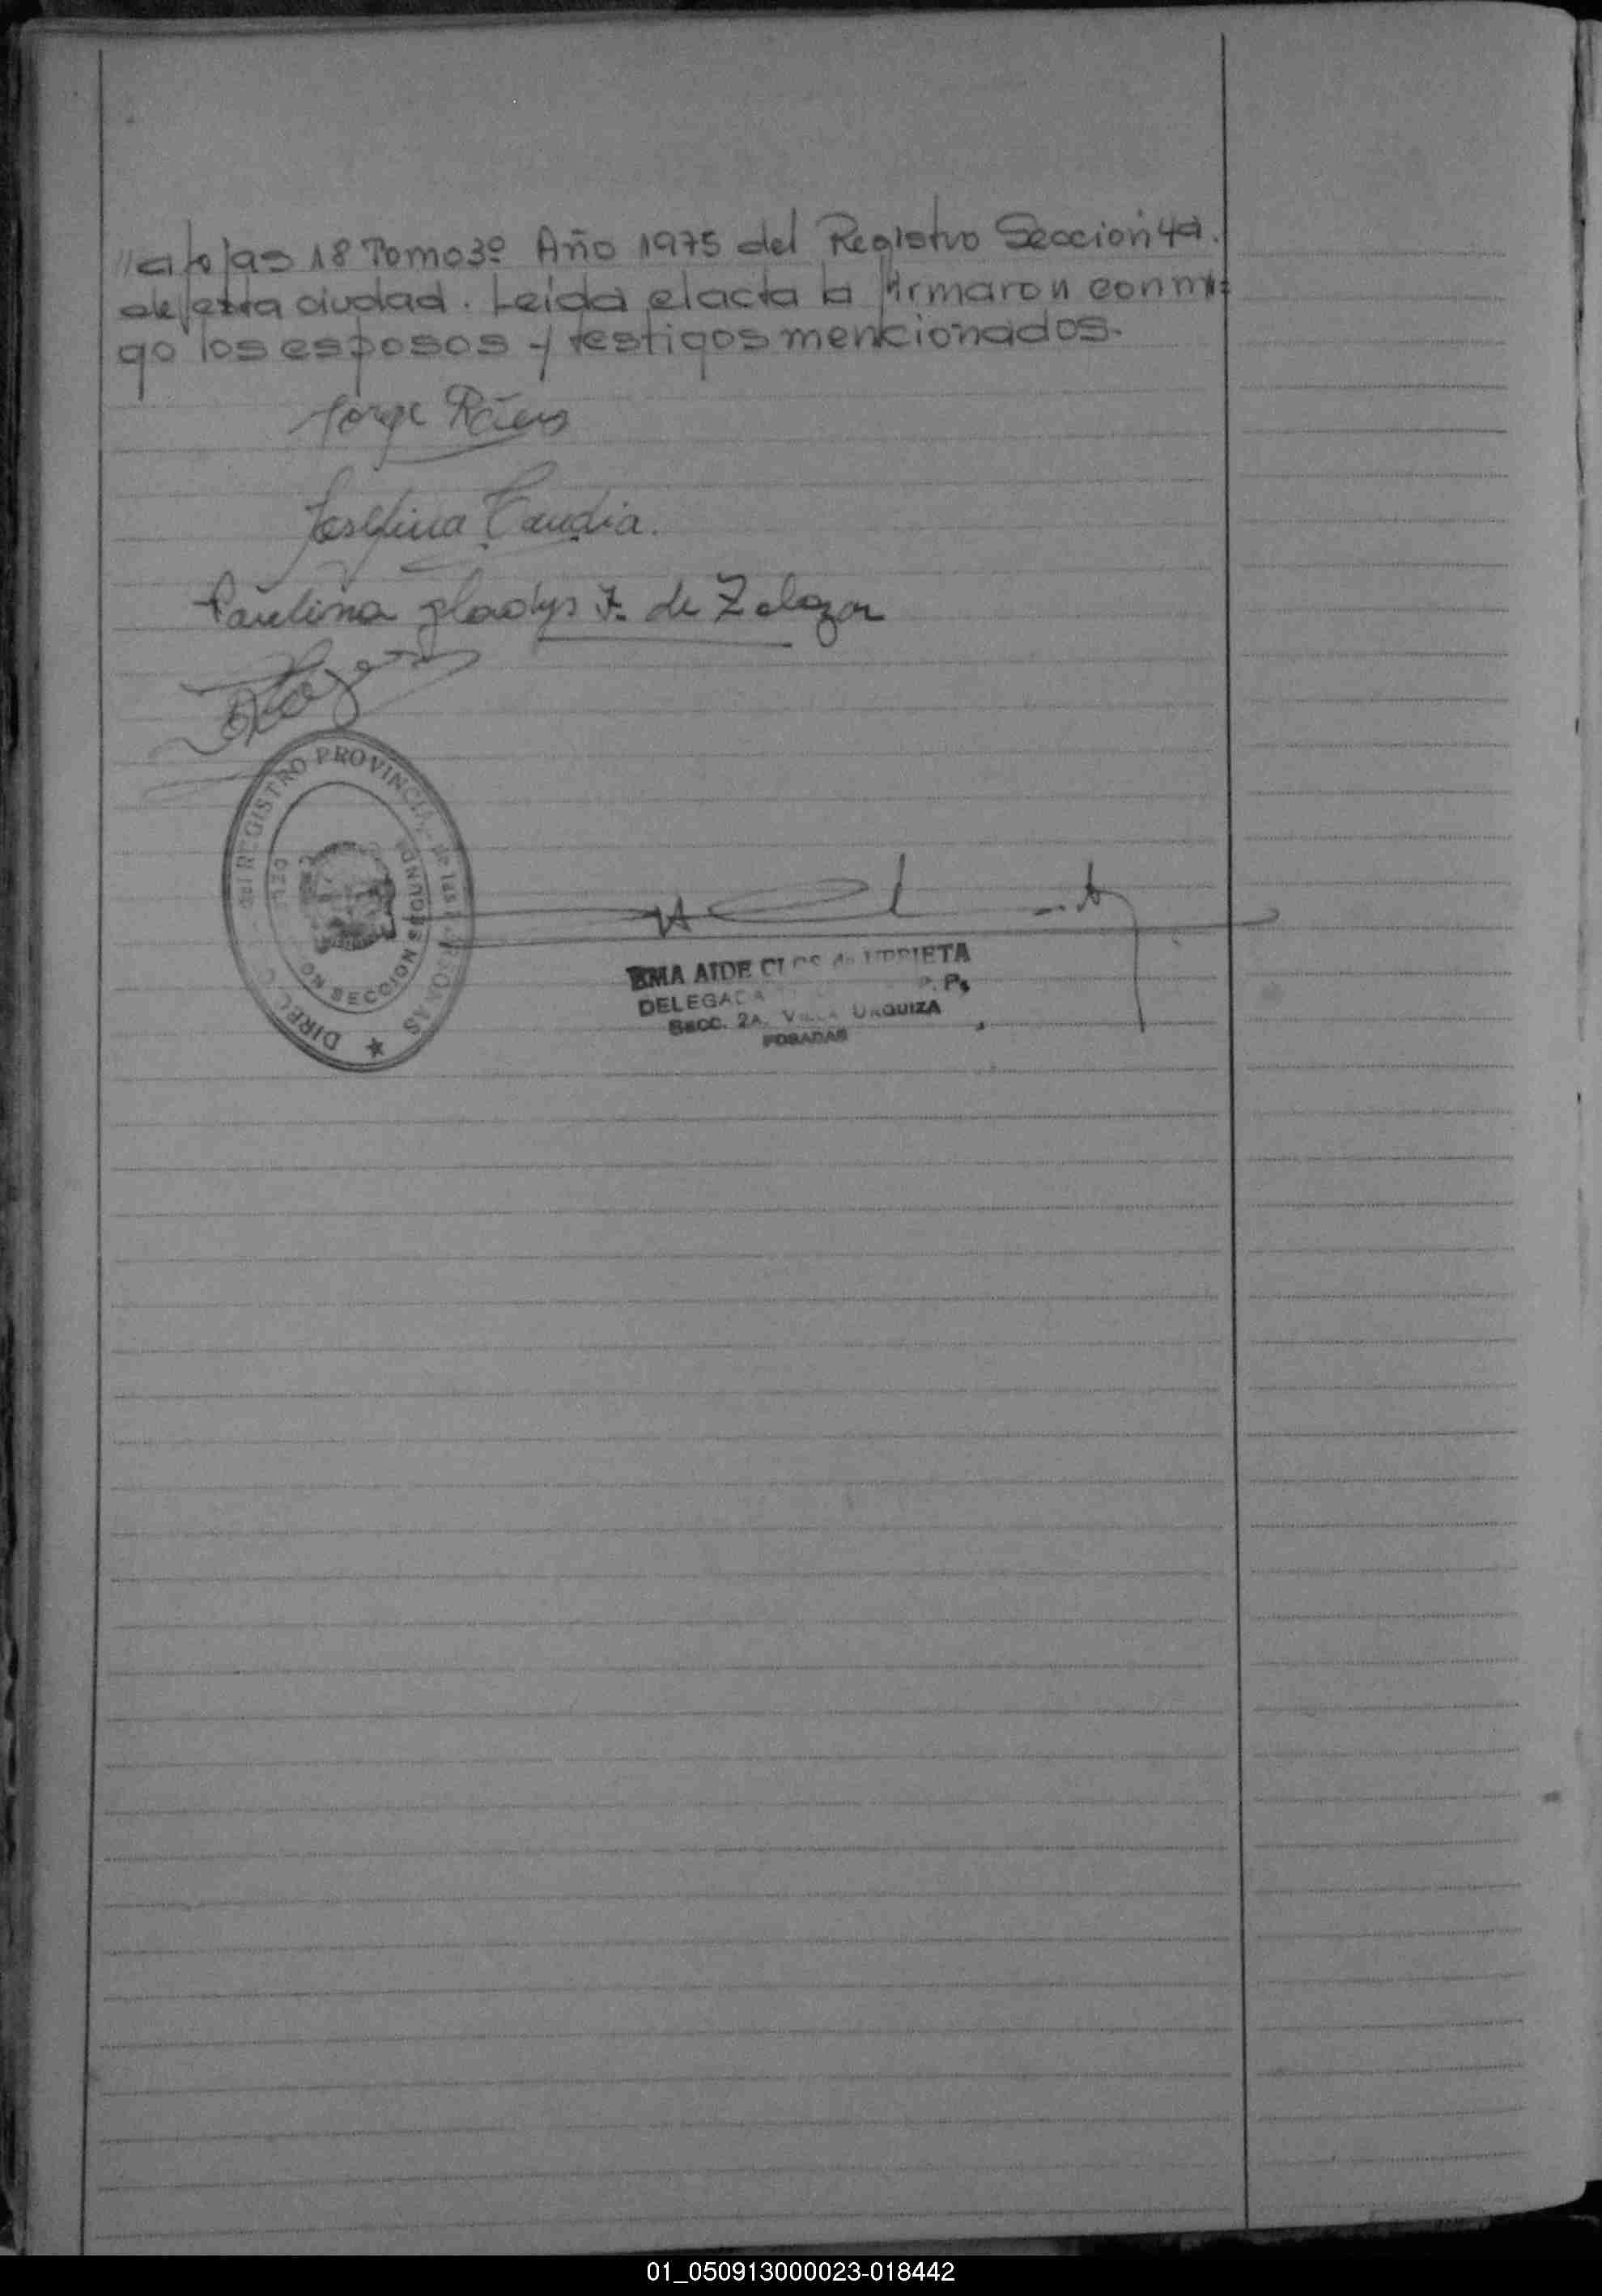 //a fojas 18 Tomo 3º Año 1975 del Registro Sección 4a.
de esta ciudad. Leída el acta la firmaron conmi=
go los esposos y testigos mencionados.
Jorge
Josefina Candia.
Paulina Gladys F. de Zalazar
DIREC. del REGISTRO PROVINCIAL de las PERSONAS
SECCION SEGUNDA
AIDE CLOS de URRIETA
DELEGADA
Secc. 2A. VILLA URQUIZA
POSADAS
01_050913000023-018442